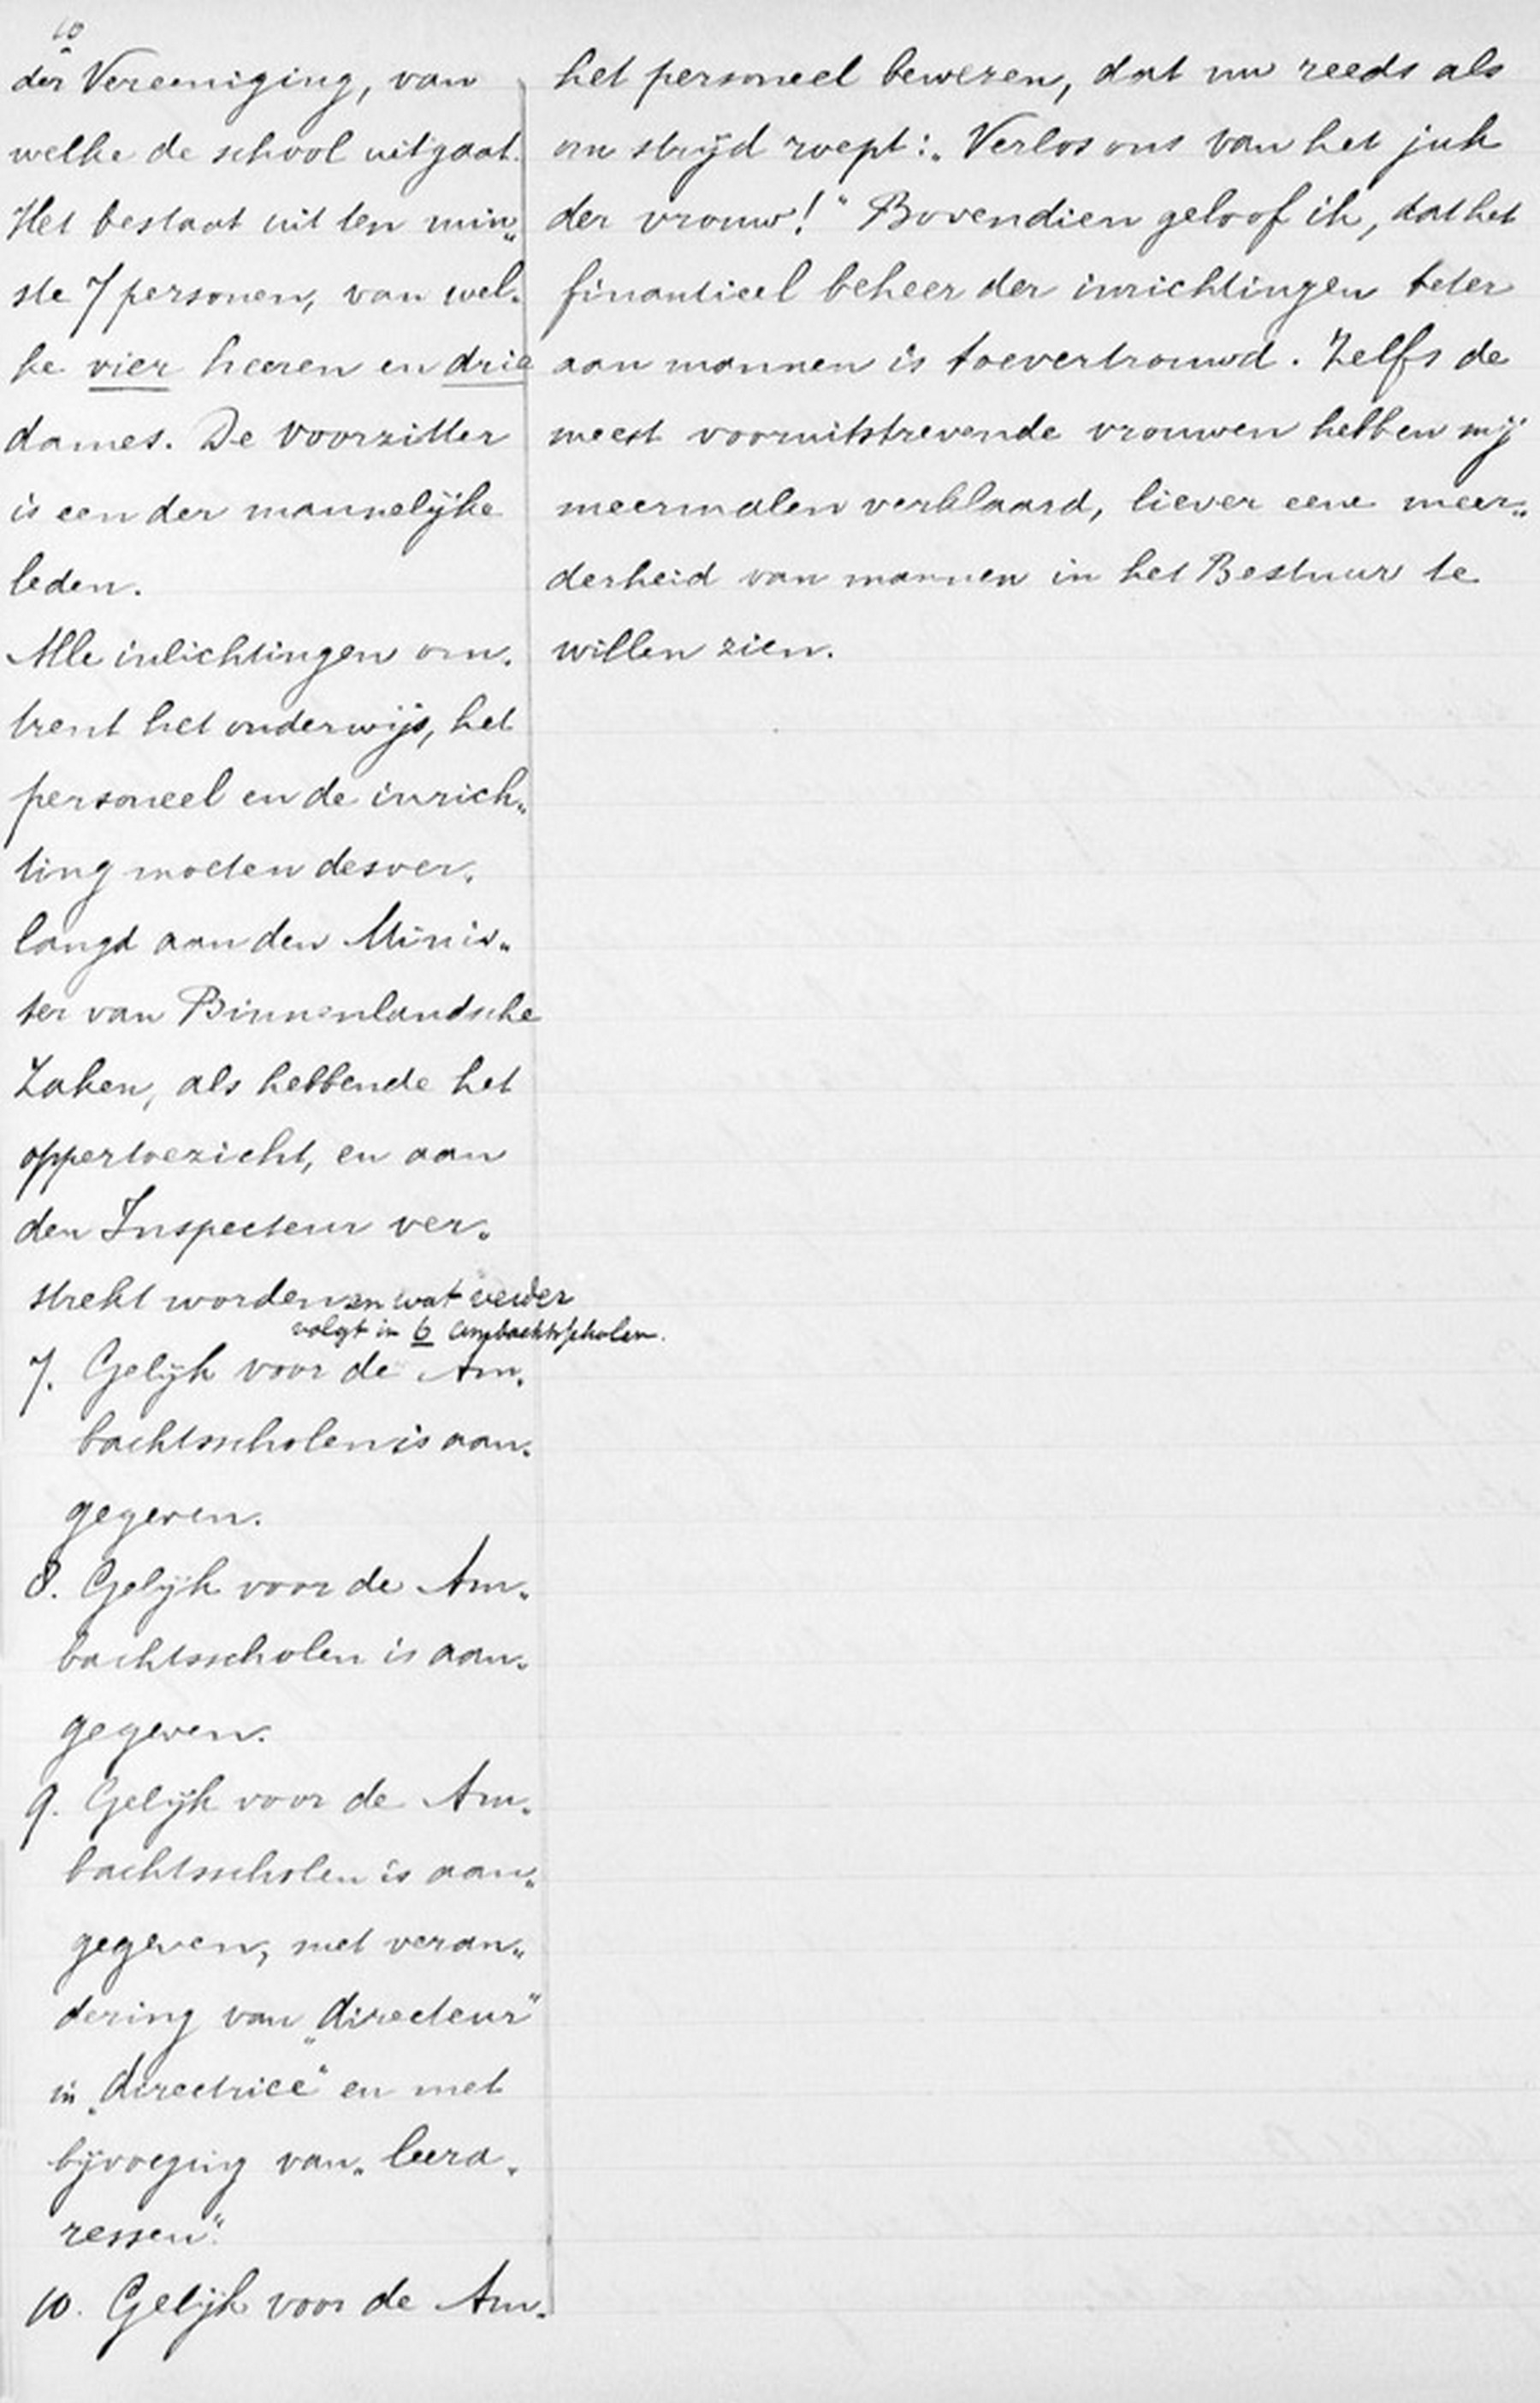 10
der Vereeniging, van
welke de school uitgaat.
Het bestaat uit ten min„
ste 7 personen, van wel„
ke vier heeren en drie
dames. De Voorzitter
is een der mannelijke
leden.
Alle inlichtingen om„
trent het onderwijs, het
personeel en de inrich„
ting moeten desver„
langd aan den Minis„
ter van Binnenlandsche
Zaken, als hebbende het
oppertoezicht, en aan
den Inspecteur ver„
strekt worden en wat verder
volgt in 6 Ambachtsscholen.
7. Gelijk voor de Am„
bachtsscholen is aan„
gegeven.
8. Gelijk voor de Am„
bachtsscholen is aan„
gegeven.
9. Gelijk voor de Am„
bachtsscholen is aan„
gegeven, met veran„
dering van „directeur”
in „directrice” en met
bijvoeging van „leera„
ressen”.
10. Gelijk voor de Am„
het personeel bewezen, dat nu reeds als
om strijd roept: „Verlos ons van het juk
der vrouw!” Bovendien geloof ik, dat het
finantieel beheer der inrichtingen beter
aan mannen is toevertrouwd. Zelfs de
meest vooruitstrevende vrouwen hebben mij
meermalen verklaard, liever eene meer„
derheid van mannen in het Bestuur te
willen zien.